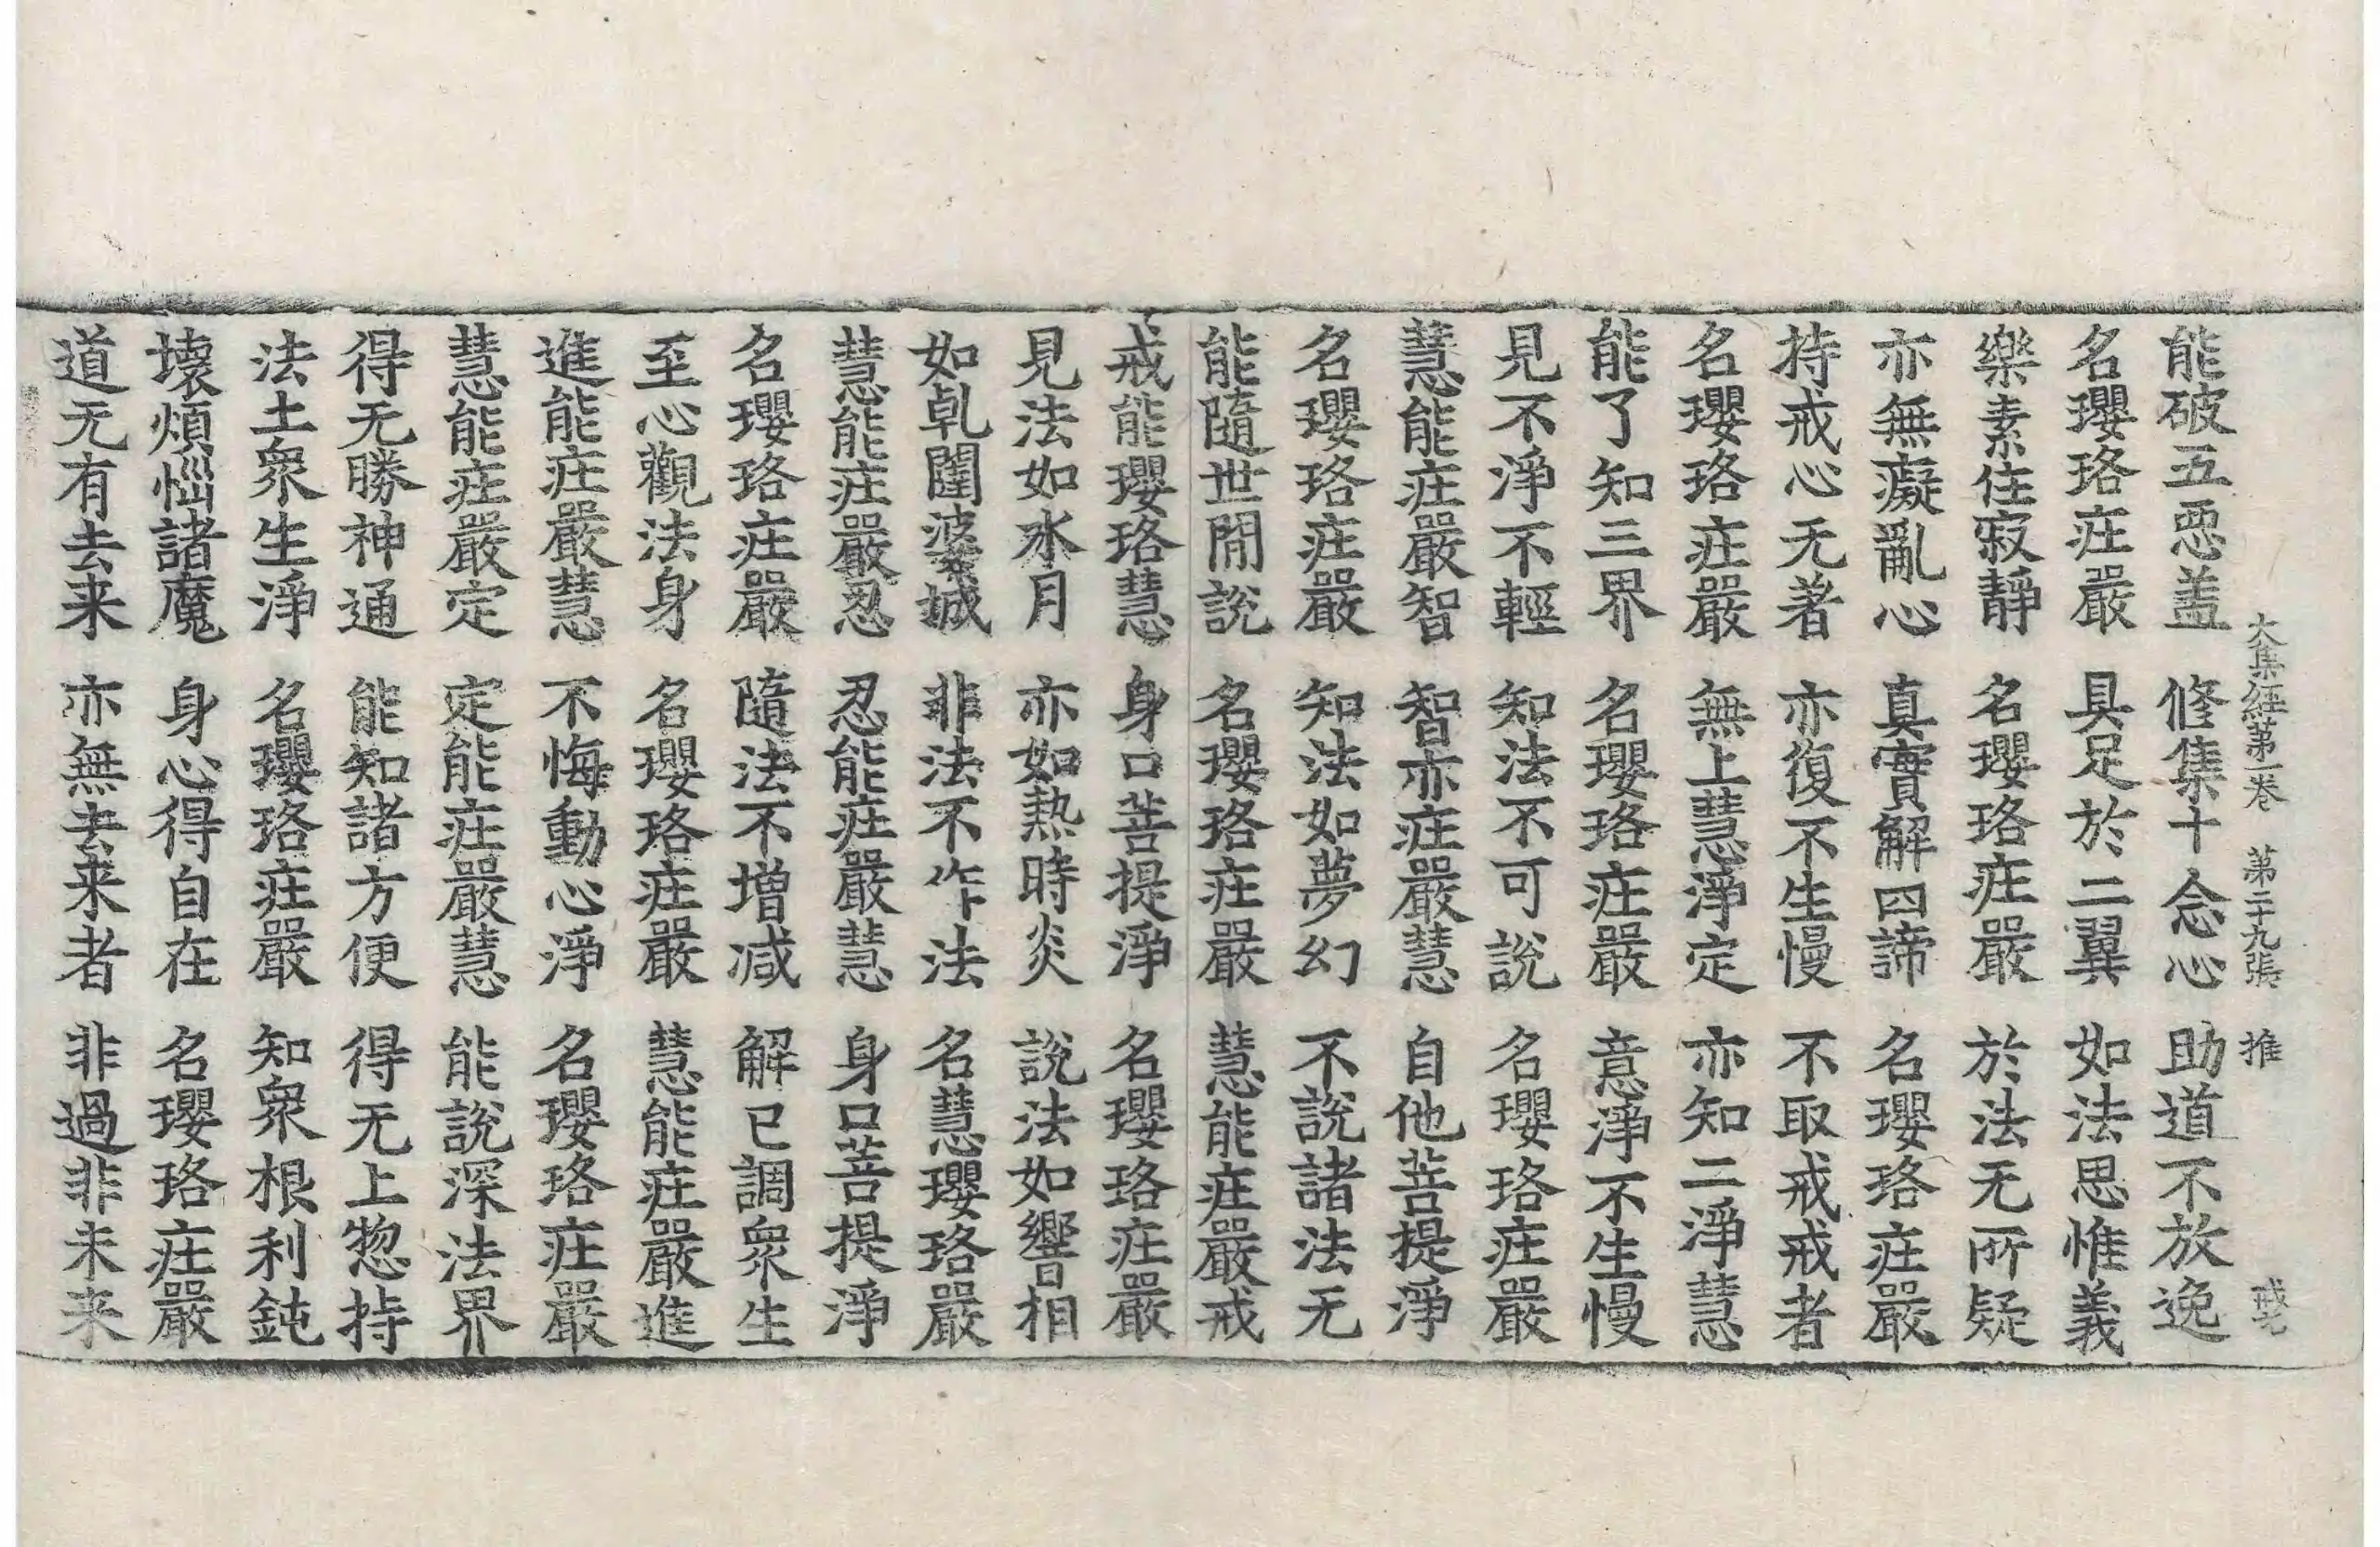 大集經第一卷 第二十九張 推 戒老
能破五惡盖 修集十念心 助道不放逸
名瓔珞莊嚴 具足於二翼 如法思惟義
樂素住寂靜 名瓔珞莊嚴 於法无所疑
亦無癡亂心 真實解四諦 名瓔珞莊嚴
持戒心无著 亦復不生慢 不取戒戒者
名瓔珞莊嚴 無上慧淨定 亦知二淨慧
能了知三界 名瓔珞莊嚴 意淨不生慢
見不淨不輕 知法不可說 名瓔珞莊嚴
慧能莊嚴智 智亦莊嚴慧 自他菩提淨
名瓔珞莊嚴 知法如夢幻 不說諸法无
能隨世間說 名瓔珞莊嚴 慧能莊嚴戒
戒能瓔珞慧 身口菩提淨 名瓔珞莊嚴
見法如水月 亦如熱時炎 說法如響相
如乹闥婆城 非法不作法 名慧瓔珞嚴
慧能莊嚴忍 忍能莊嚴慧 身口菩提淨
名瓔珞莊嚴 隨法不增减 解已調衆生
至心觀法身 名瓔珞莊嚴 慧能莊嚴進
進能莊嚴慧 不悔動心淨 名瓔珞莊嚴
慧能莊嚴定 定能莊嚴慧 能說深法界
得无勝神通 能知諸方便 得无上惣持
法土衆生淨 名瓔珞莊嚴 知衆根利鈍
壞煩惱諸魔 身心得自在 名瓔珞莊嚴
道无有去来 亦無去来者 非過非未来